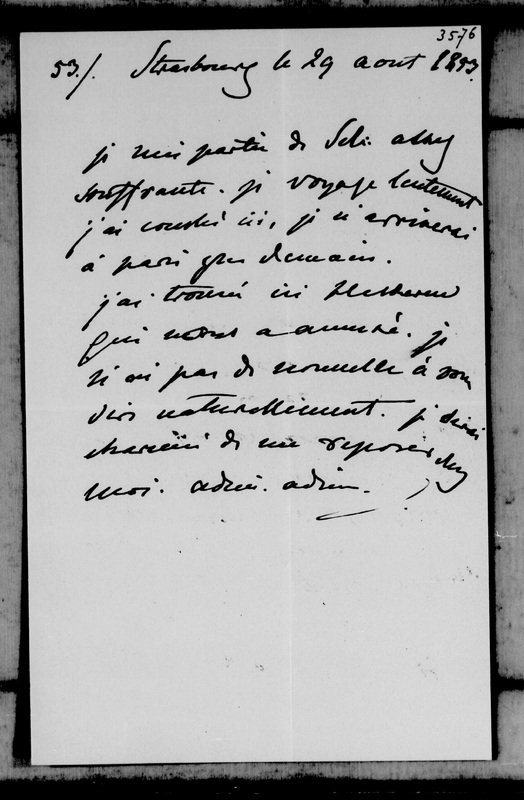 3576
53./. Strasbourg le 29 aout 1853.
je suis partie de Schl. assez
souffrante. je voyage lentement
j'ai couché ici, je n'arriverai
à paris que demain.
j'ai trouvé ici
qui nous a amusé. je
n'ai pas de nouvelle à vous
dire naturellement. je serai
charmée de me reposer chez
moi. adieu. adieu.